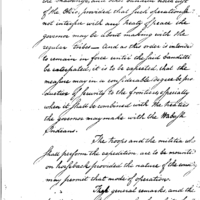 the Ohio, provided that such operations do
not interfere with any treaty of peace the
governor may be about making with the
regular tribes — And as this order is intended
to remain in force until the said banditti
be extirpated, it is to be expected that the
measure may in a considerable degree be pro-
ductive of security to the frontiers especially
when it shall be combined with the treaties
the governor may make with the Wabash
Indians.
The troops and the militia who
shall perform the expedition are to be mounted
on horseback provided the nature of the country
may permit that mode of operation.
These general remarks and the